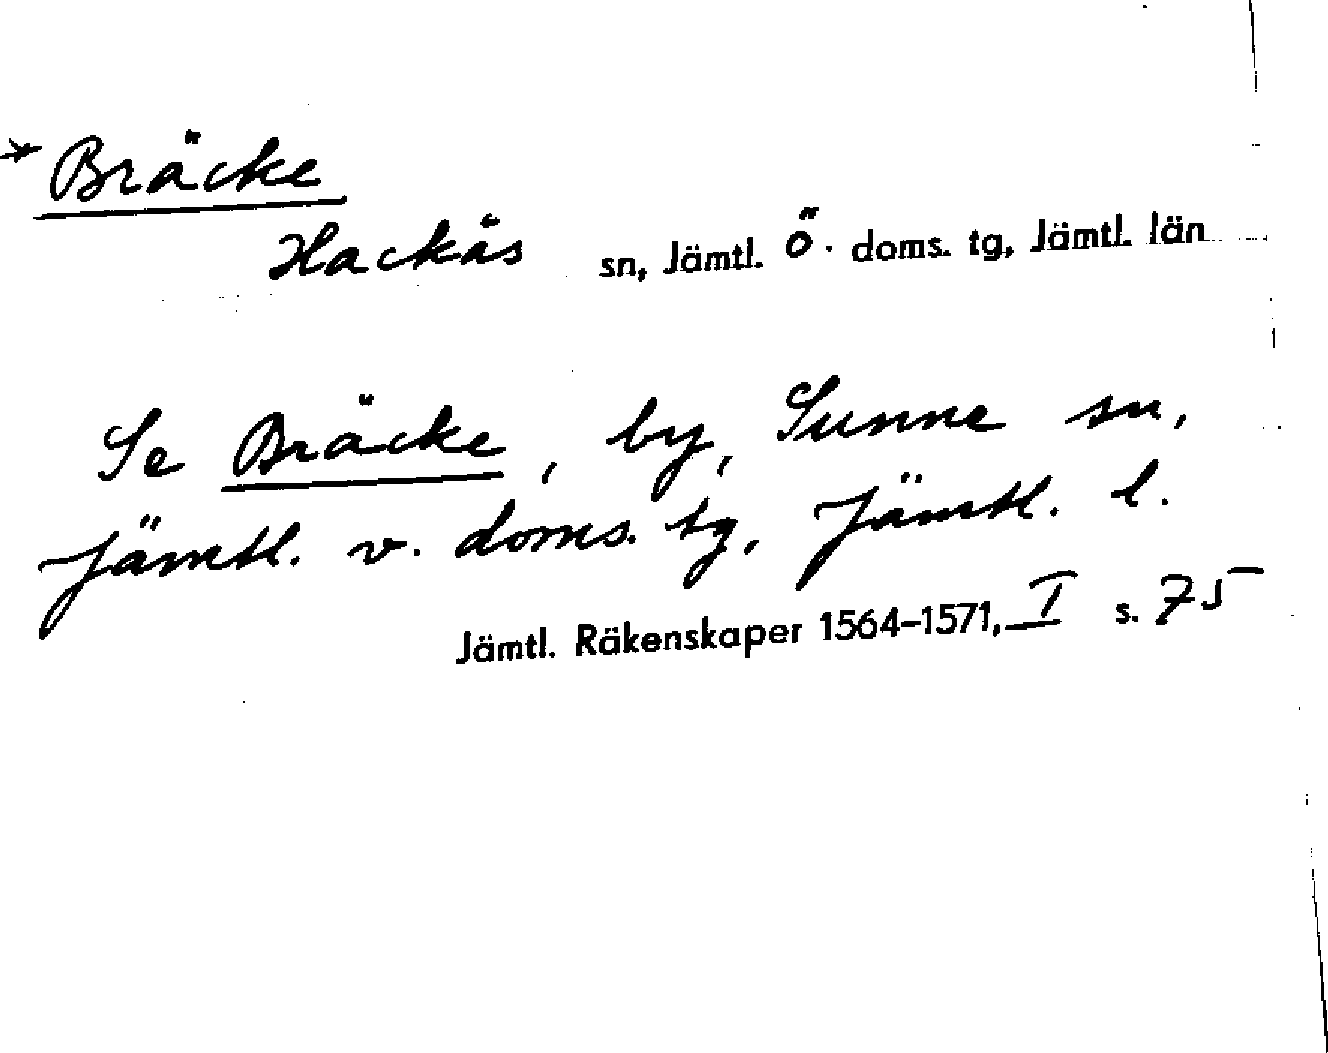 * Bräcke
Hackås sn, Jämtl. ö. doms. tg, Jämtl. län
Se Bräcke, by, Sunne sn,
Jämtl. v. doms. tg, Jämtl. l.
Jämtl. Räkenskaper 1564-1571, I s. 75